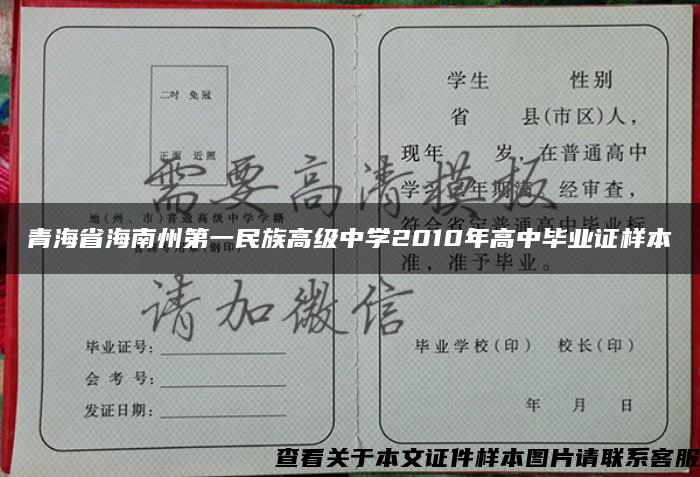 二吋 免冠
正面 近照
地(州、市)普通高级中学学籍
毕业证号:
会考号:
发证日期:
学生 性别
省 县(市区)人,
现年 岁,在普通高中
学习 年期满,经审查,
符合省定普通高中毕业标
准,准予毕业。
毕业学校(印) 校长(印)
年 月 日
需要高清模板
请加微信
青海省海南州第一民族高级中学2010年高中毕业证样本
查看关于本文证件样本图片请联系客服